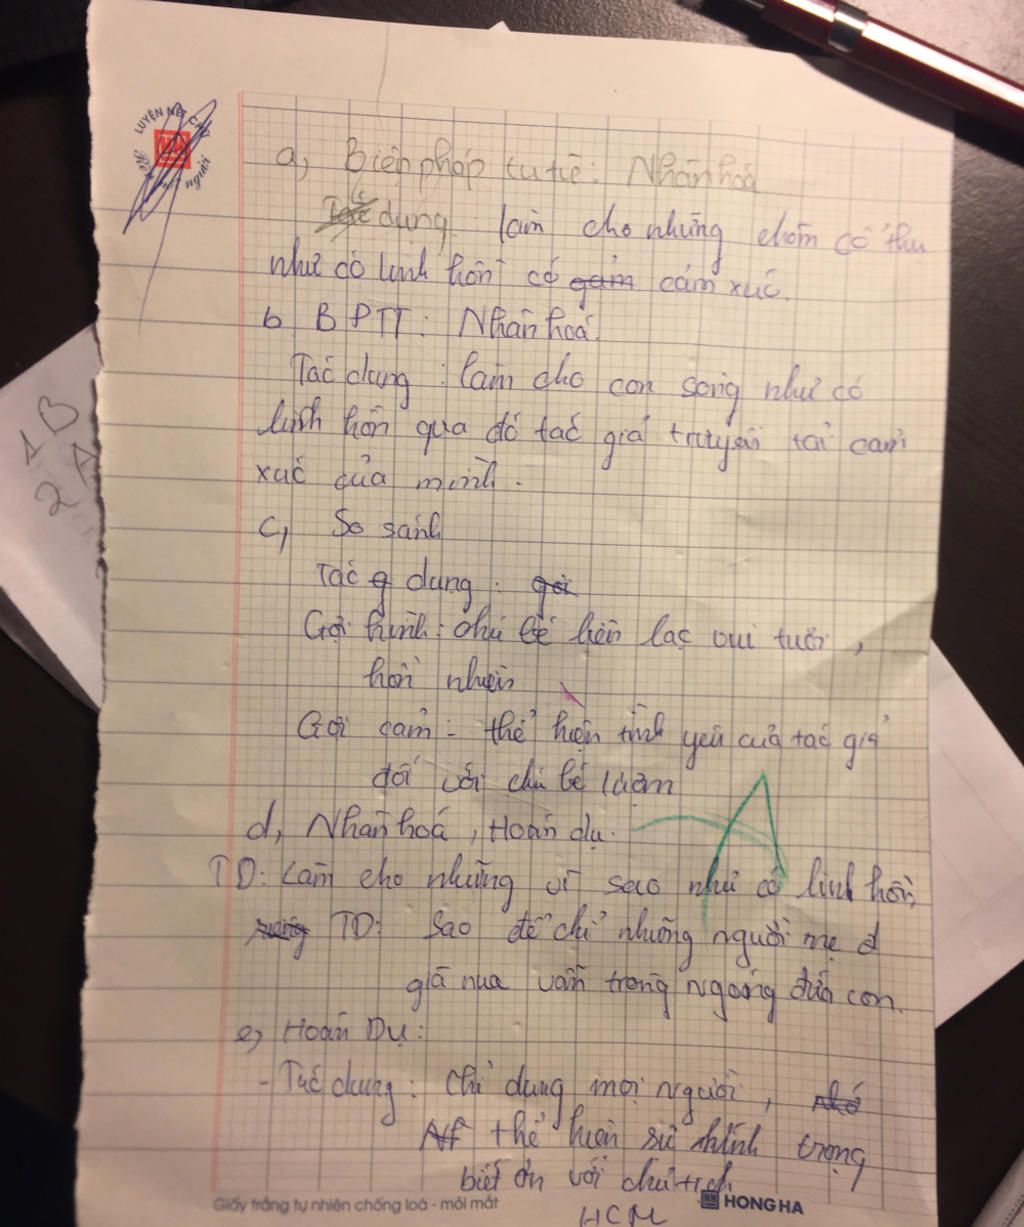 LUYỆN NÉT CHỮ
người
a, Biện pháp tu từ: Nhân hoá
dụng làm cho những chòm cổ thụ
như có linh hồn có cảm xúc.
b BPTT: Nhân hoá.
Tác dụng: làm cho con sông như có
linh hồn qua đó tác giả truyền tải cảm
xúc của mình.
c, So sánh
Tác dụng:
Gợi hình: chú bé liên lạc vui tươi,
hồn nhiên
Gợi cảm: thể hiện tình yêu của tác giả
đối với chú bé lượm
d, Nhân hoá, Hoán dụ.
TD: Làm cho những vì sao như có linh hồn,
TD: Sao để chỉ những người mẹ đ
già nua vẫn trong ngóng đứa con.
e, Hoán Dụ:
- Tác dụng: Chỉ dung mọi người,
thể hiện sự kính trọng
biết ơn với chủ tịch
HCM
Giấy trắng tự nhiên chống loá - mỏi mắt
HH HONG HA
1 B
2 A